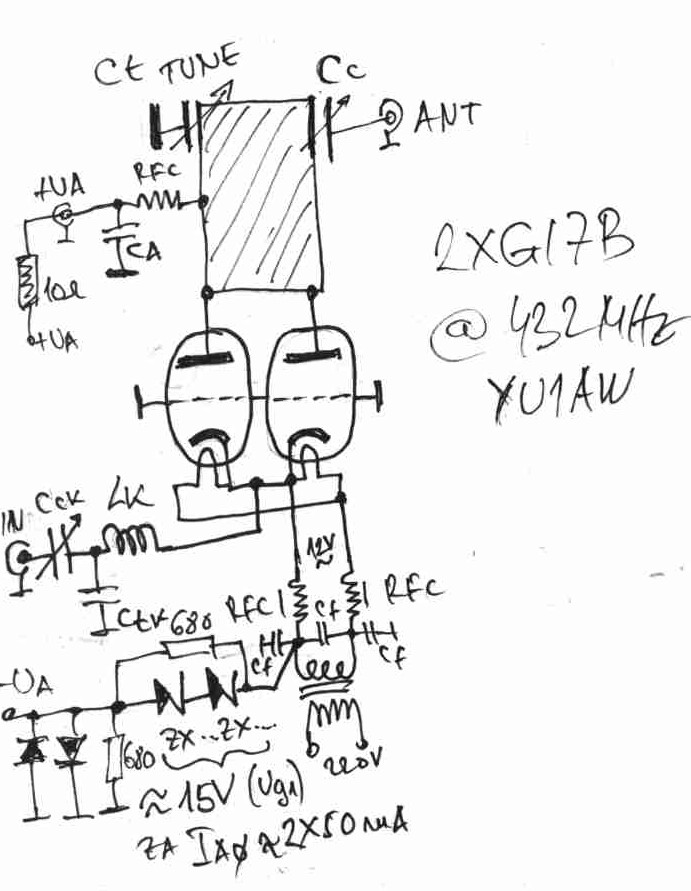 Ct TUNE
Cc
ANT
RFC
+UA
CA
10Ω
+UA
2XGI7B
@ 432MHz
YU1AW
IN
CcK
LK
12V
~
CtK
680
RFC
Cf
RFC
Cf
Cf
-UA
680
ZX...ZX...
220V
≈15V (Ug1)
ZA IAØ≈2X50mA